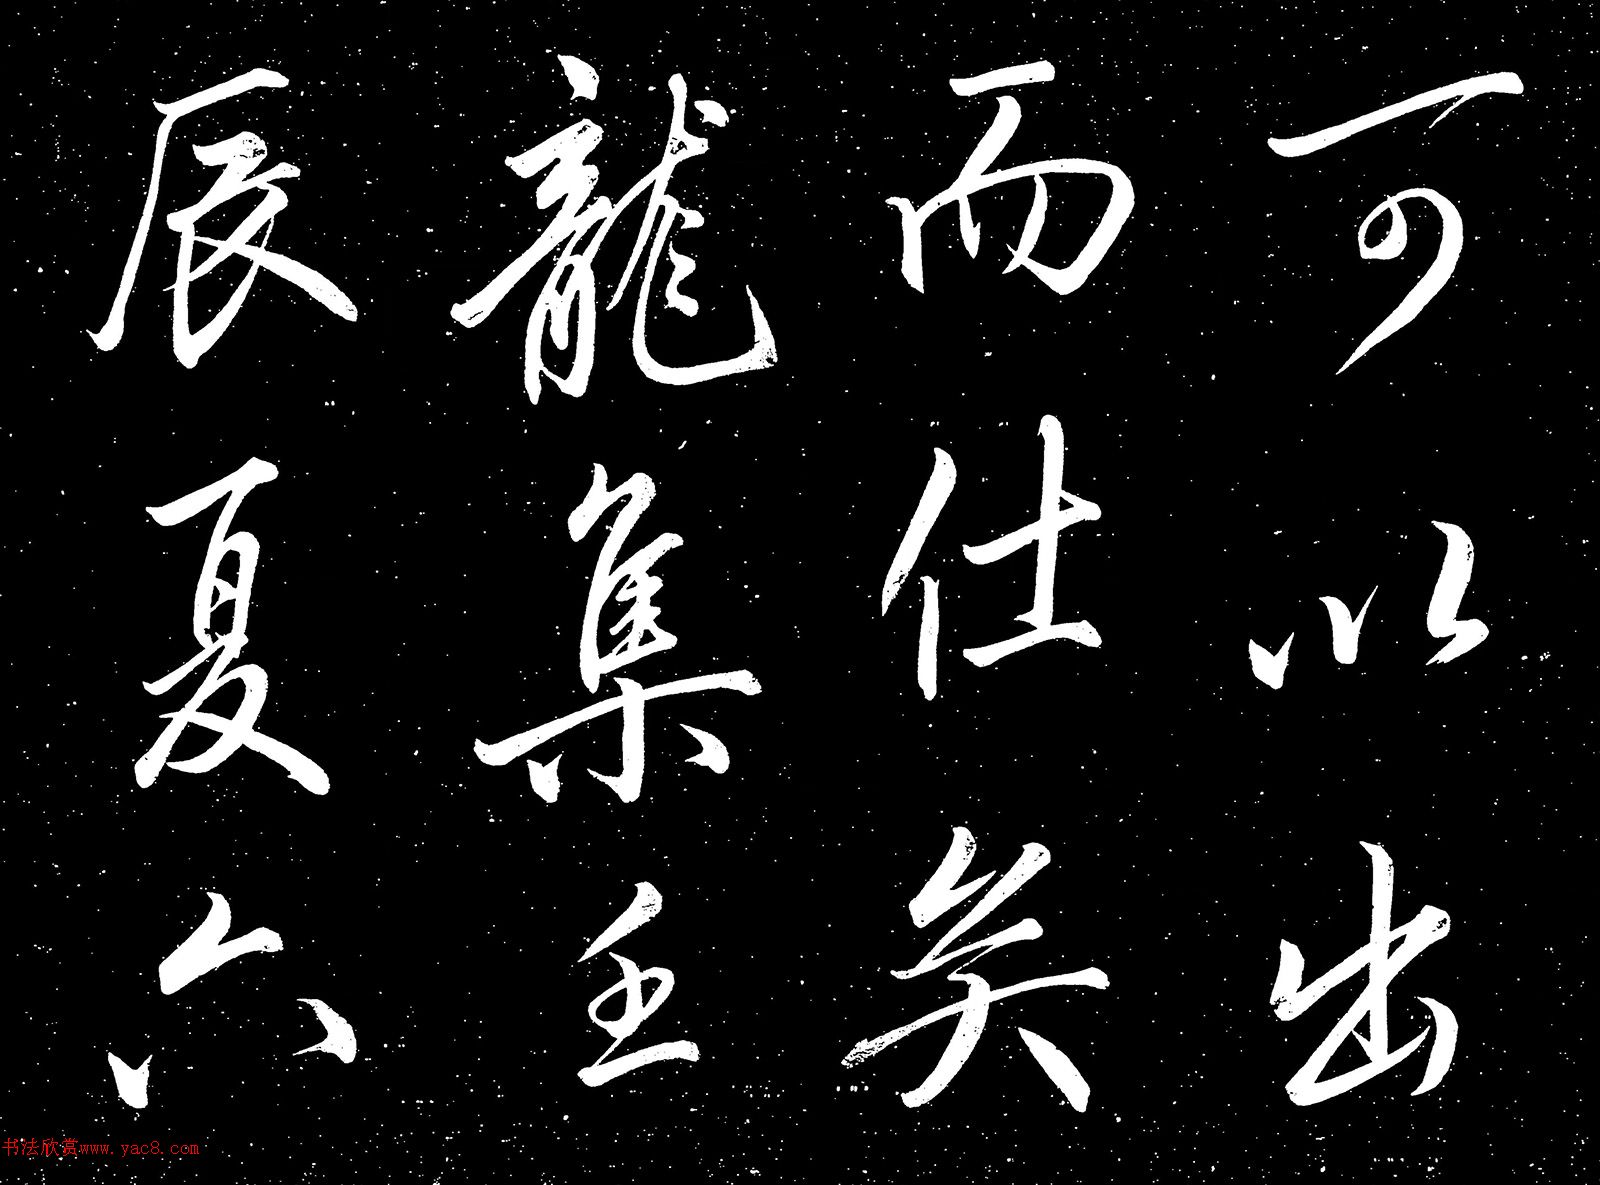 可以出
而仕矣
龍集壬
辰夏六
书法欣赏www.yac8.com